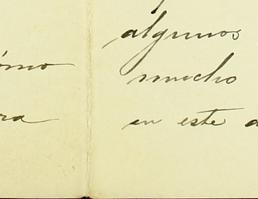 ra
algunos
mucho
en este